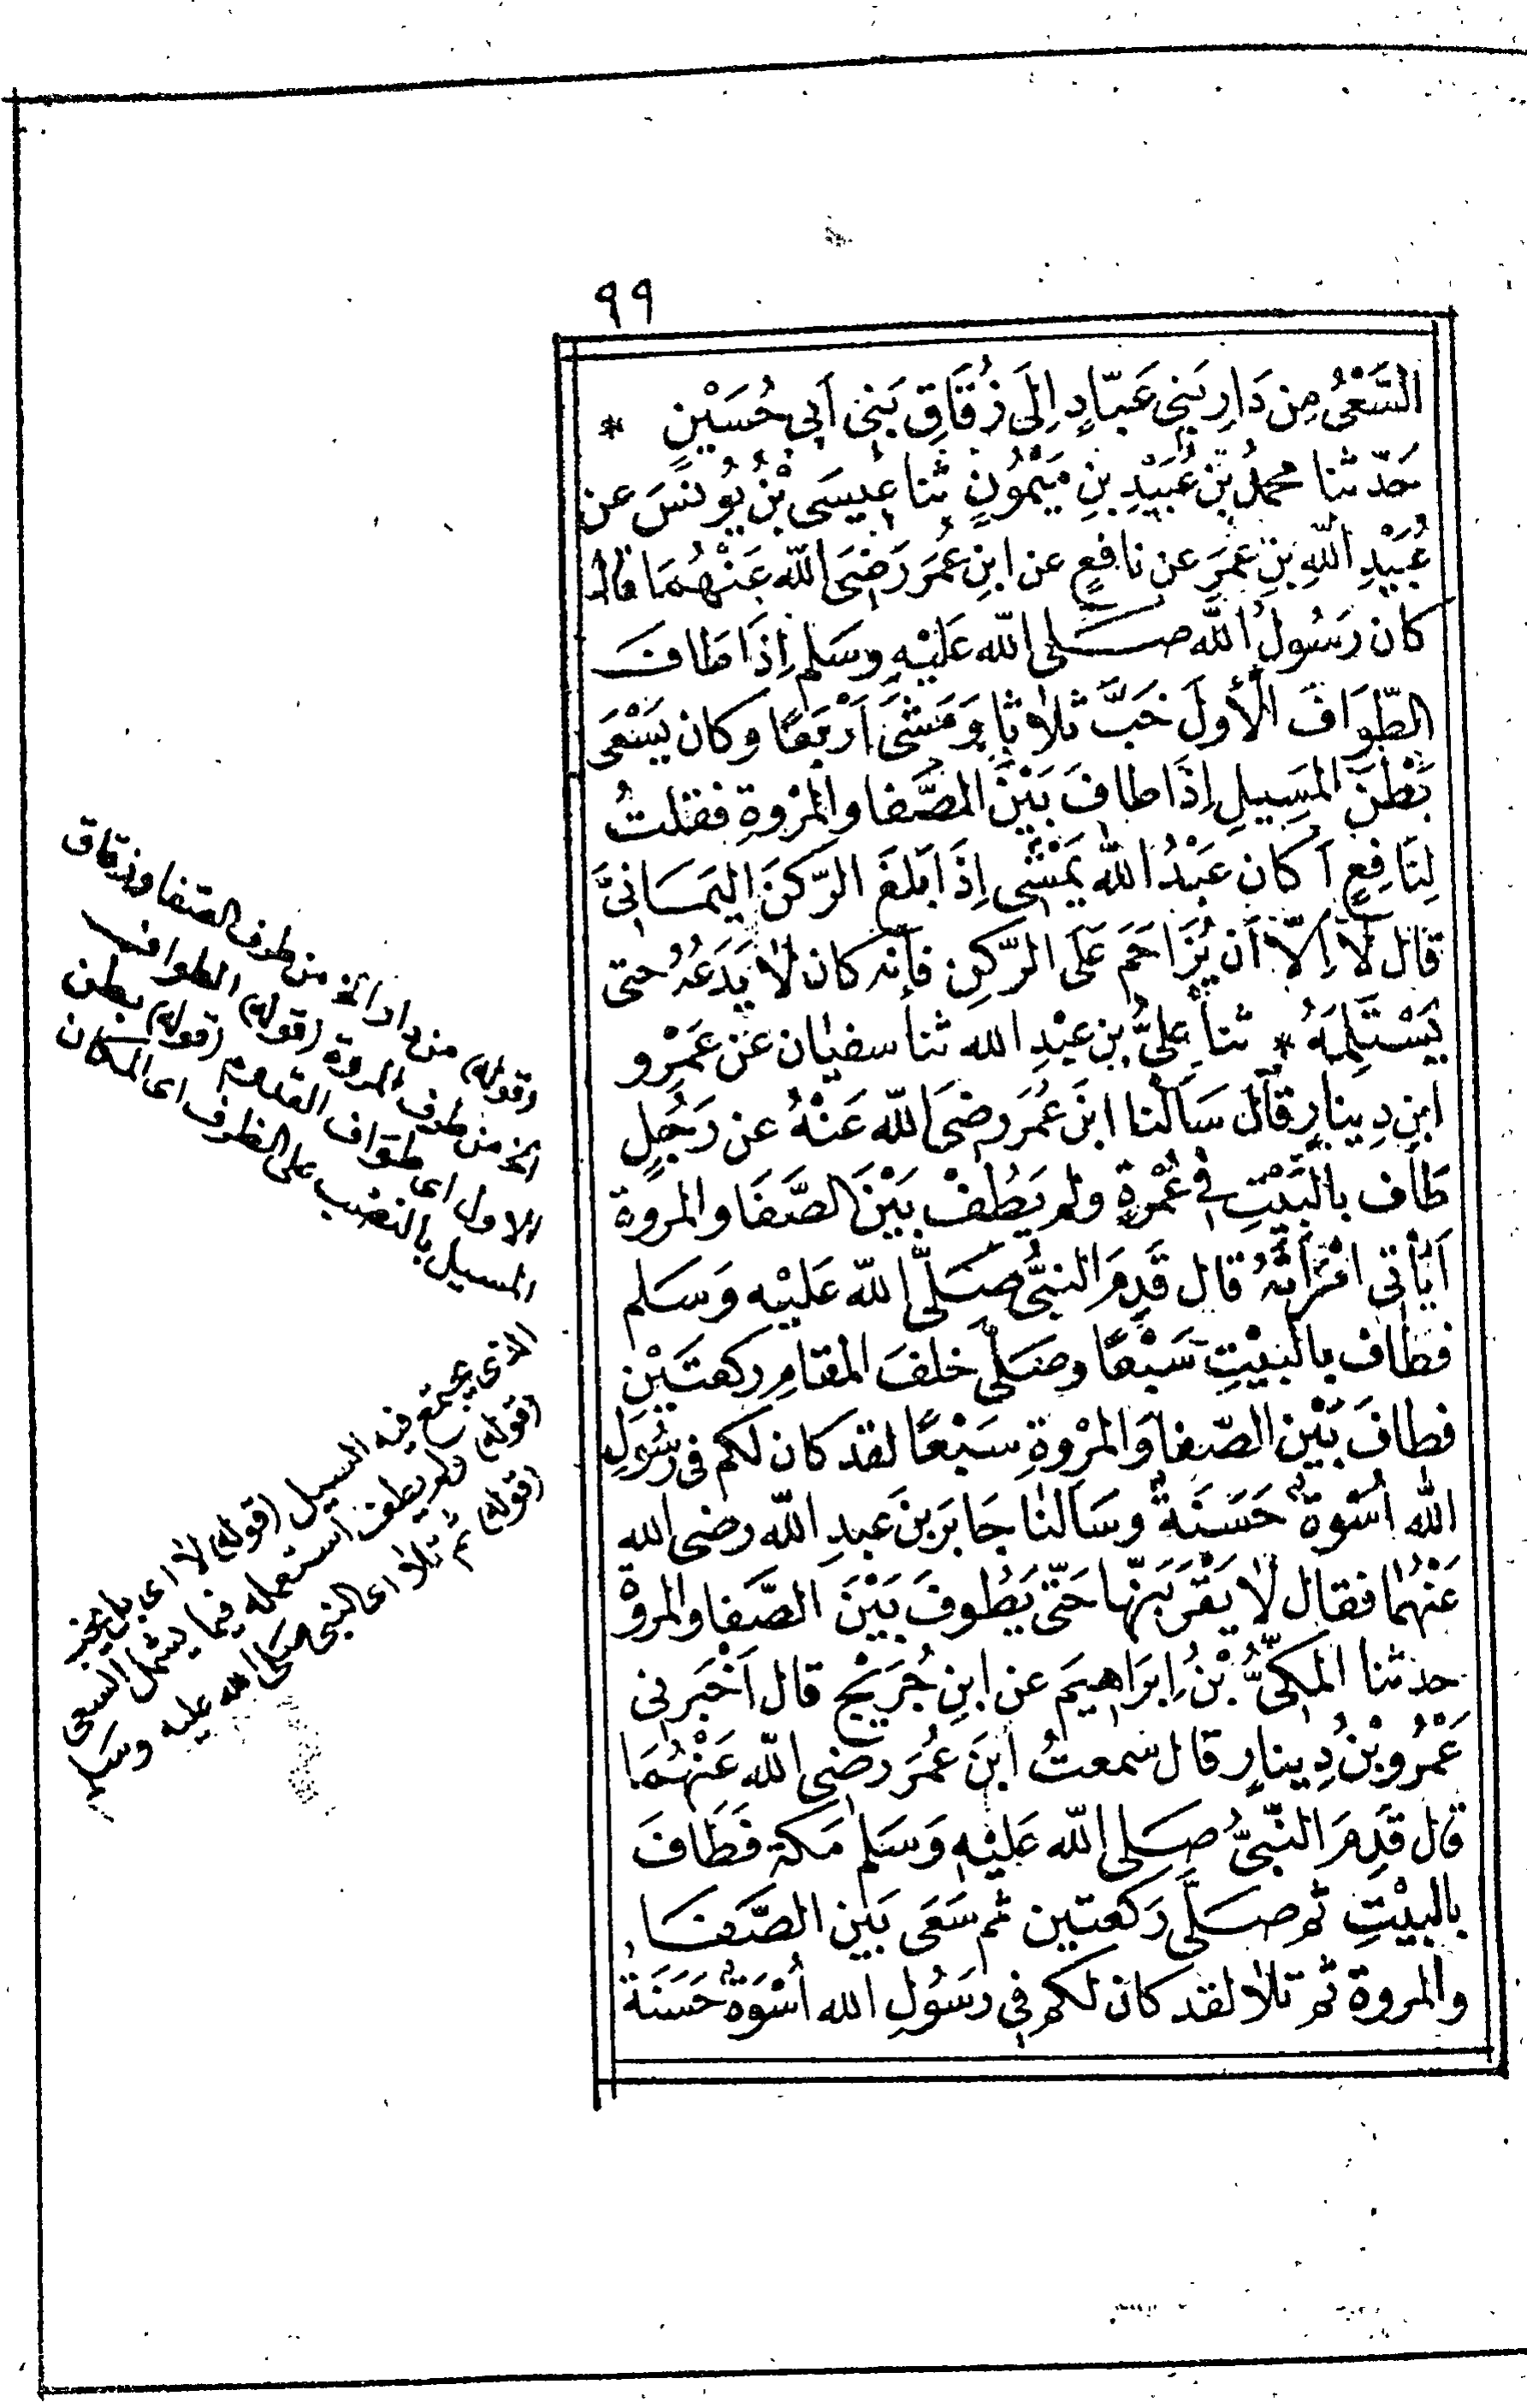 ٩٩
السَّعْىُ مِن دَارِ بَنِى عَبَّادٍ اِلَى زُقَاقِ بَنِى اَبِى حُسَيْنٍ *
حَدّثنا محمدُ بْنُ عُبَيْدِ بنِ مَيْمُونٍ ثنا عِيسَى بْنُ يُونسَ عن
عُبَيْدِ اللّٰهِ بنِ عُمَرَ عن نافعٍ عن ابنِ عُمَرَ رَضِىَ اللّٰه عَنْهُمَا قال
كان رَسُولُ اللّٰه صلى اللّٰه عَلَيْهِ وسَلم اِذَا طَافَ
الطّوَافَ الْأولَ خَبَّ ثلاثا وَمَشَى اَرْبَعًا وكان يَسْعَى
بَطْنَ المَسِيلِ اِذَا طافَ بَيْنَ الصَّفا والمَرْوةِ فقلتُ
لِنَافِعٍ اَكان عَبْدُ اللّٰه يَمْشِى اِذَا بَلَغَ الرّكنَ اليَمَانِىَّ
قال لا اِلّا اَن يُزَاحَمَ عَلَى الرّكنِ فاِنّه كان لا يَدَعُهُ حتى
يَسْتَلِمَهُ * ثنا عَلِىُّ بن عبْدِ الله ثنا سفيان عَن عَمْرو
ابنِ دِينارٍ قال سَاَلنا ابنَ عُمَرَ رضىَ اللّٰه عَنْهُ عن رَجُلٍ
طَاف بالبَيْتِ فى عُمْرةٍ ولم يَطُفْ بَيْنَ الصَّفَا والمروة
اَيَأتى امْرَأتَهُ قال قَدِمَ النبىُّ صَلَّى اللّٰه عَليْه وَسَلم
فطاف بالبَيْتِ سَبْعًا وصَلَّى خلفَ المقامِ ركعتَيْنِ
فطافَ بَيْن الصّفا وَالمرْوةِ سَبْعًا لقد كان لكم فى رَسُولِ
اللّٰه اُسْوةٌ حَسَنَةٌ وسَاَلنا جَابرَ بنَ عبدِ اللّٰه رضى الله
عَنْهُما فقال لا يَقْرَبَنّها حَتّى يَطُوفَ بَيْنَ الصَّفا والمروة
حدثنا المكىُّ بْنُ اِبرَاهيمَ عن ابنِ جُرَيْجٍ قال اَخْبَرنى
عَمْرُو بْنُ دِينارٍ قال سَمعتُ ابنَ عُمَرَ رضى اللّٰه عَنْهُمَا
قال قَدِمَ النّبىُّ صلى اللّٰه عَليْهِ وَسَلم مَكة فَطَافَ
بالبيْتِ ثم صَلَّى رَكعتين ثم سَعَى بَين الصَّفَا
والمروة ثم تلا لقد كان لكم فى رسُولِ الله اُسْوَةٌ حَسَنَةٌ
(قوله) من دار الخ من طرف الصفا وزقاق
الخ من طرف المروة (قوله) الطواف
الاول اى طواف القدوم (قوله) بطن
المسيل بالنصب على الظرف اى المكان
الذى يجتمع فيه السيل (قوله) لا اى
(قوله) ولم يطف استعمله فيما يشمل السعى
(قوله) ثم تلا اى النبى صلى الله عليه وسلم